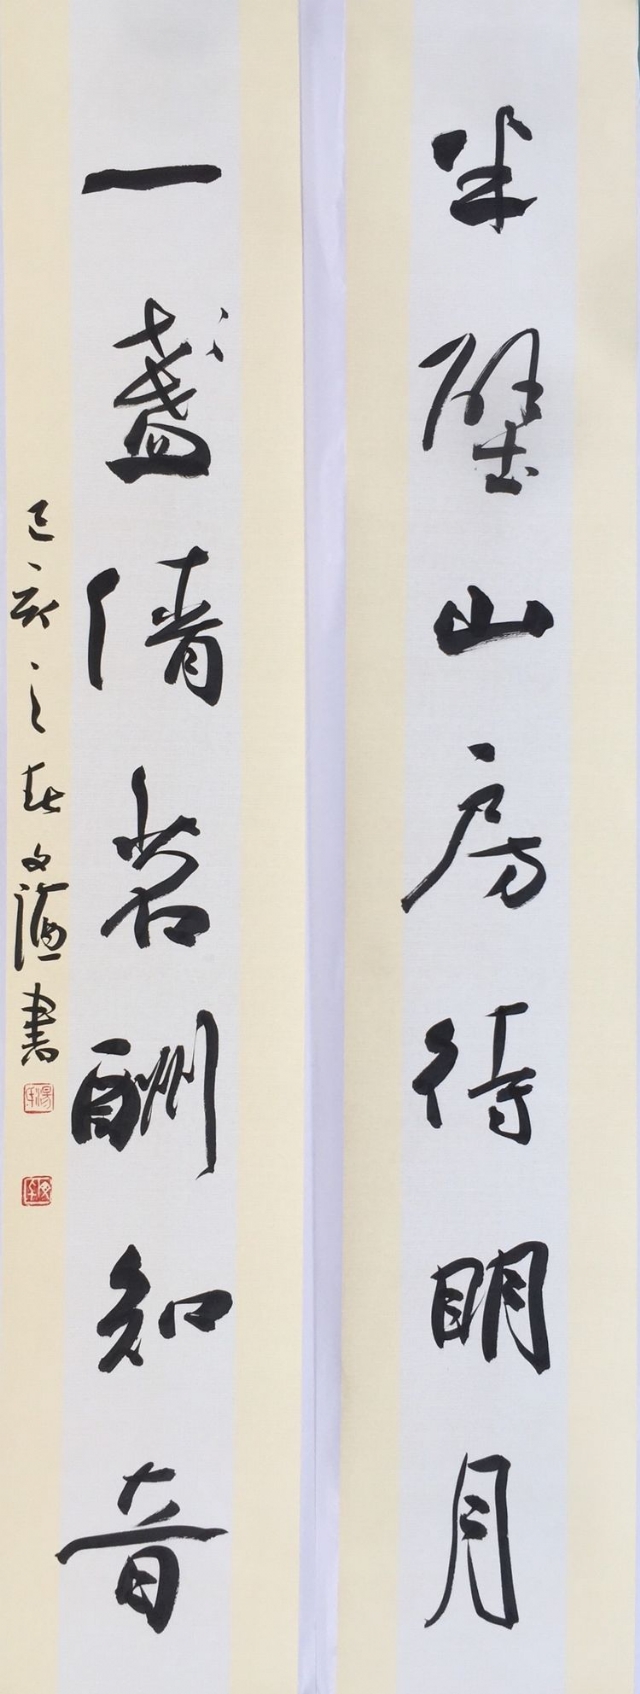 半壁山房待明月
一盞清茗酬知音
己亥之春文 書